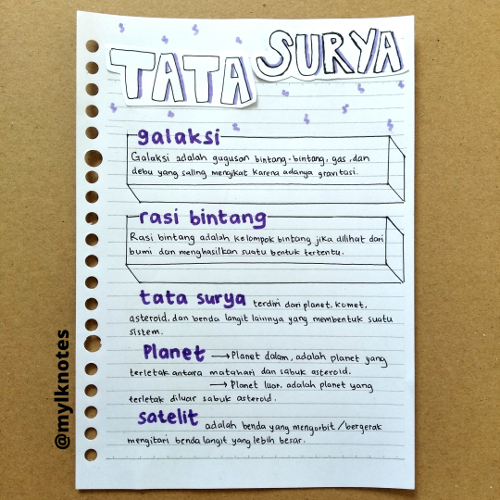 TATA SURYA
galaksi
Galaksi adalah gugusan bintang-bintang, gas, dan
debu yang saling mengikat karena adanya gravitasi.
rasi bintang
Rasi bintang adalah kelompok bintang jika dilihat dari
bumi dan menghasilkan suatu bentuk tertentu.
tata surya terdiri dari planet, komet,
asteroid, dan benda langit lainnya yang membentuk suatu
sistem.
Planet → Planet dalam, adalah planet yang
terletak antara matahari dan sabuk asteroid.
→ Planet luar, adalah planet yang
terletak diluar sabuk asteroid.
satelit adalah benda yang mengorbit / bergerak
mengitari benda langit yang lebih besar.
@mylknotes